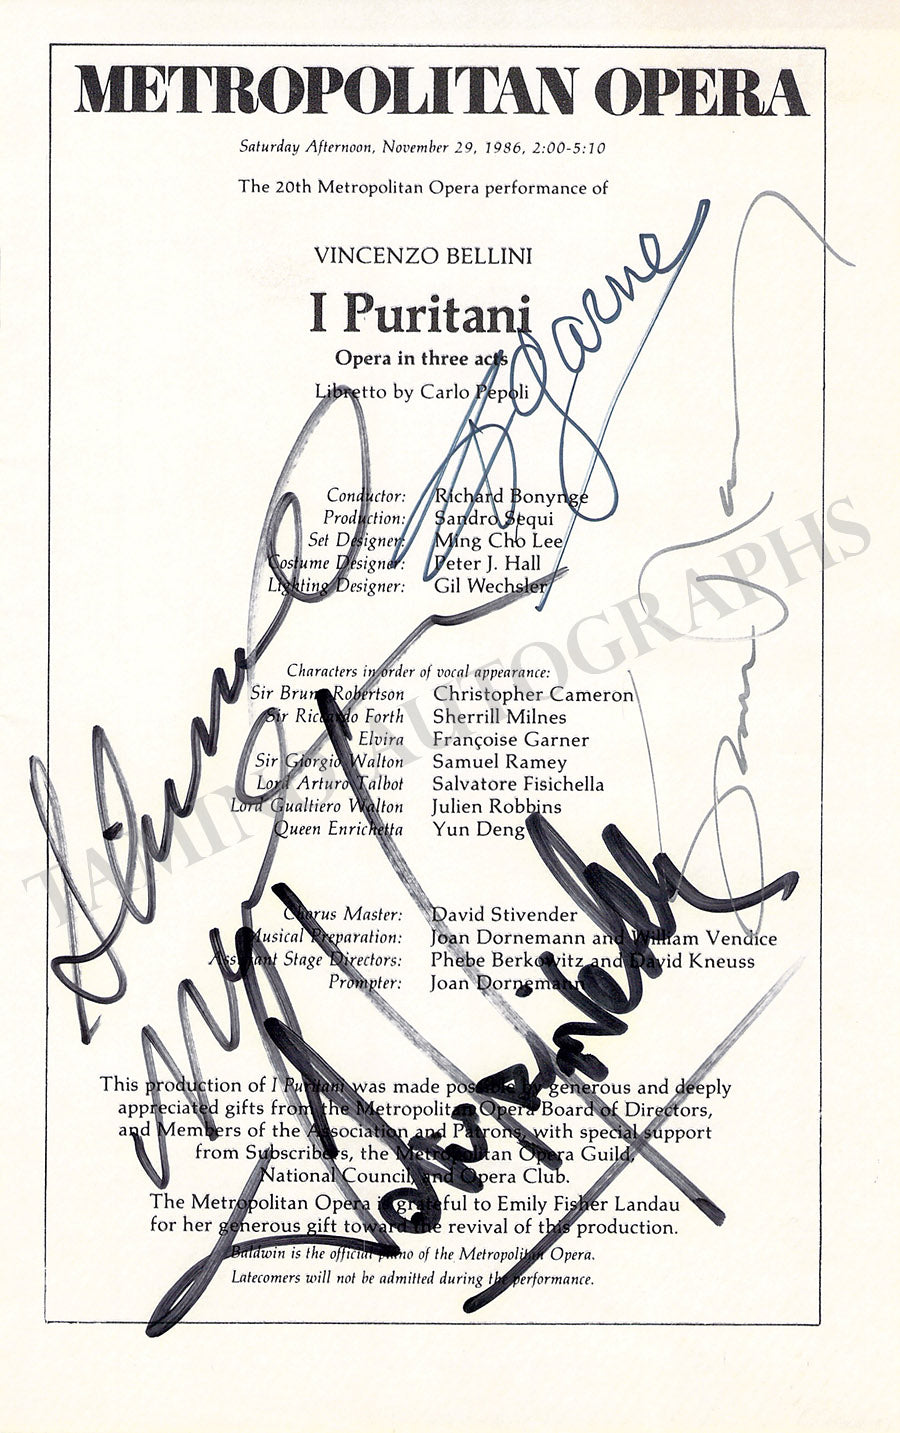 METROPOLITAN OPERA
Saturday Afternoon, November 29, 1986, 2:00-5:10
The 20th Metropolitan Opera performance of
VINCENZO BELLINI
I Puritani
Opera in three acts
Libretto by Carlo Pepoli
Conductor: Richard Bonynge
Production: Sandro Sequi
Set Designer: Ming Cho Lee
Costume Designer: Peter J. Hall
Lighting Designer: Gil Wechsler
Characters in order of vocal appearance:
Sir Bruno Robertson Christopher Cameron
Sir Riccardo Forth Sherrill Milnes
Elvira Françoise Garner
Sir Giorgio Walton Samuel Ramey
Lord Arturo Talbot Salvatore Fisichella
Lord Gualtiero Walton Julien Robbins
Queen Enrichetta Yun Deng
Chorus Master: David Stivender
Musical Preparation: Joan Dornemann and William Vendice
Assistant Stage Directors: Phebe Berkowitz and David Kneuss
Prompter: Joan Dornemann
This production of I Puritani was made possible by generous and deeply
appreciated gifts from the Metropolitan Opera Board of Directors,
and Members of the Association and Patrons, with special support
from Subscribers, the Metropolitan Opera Guild,
National Council, and Opera Club.
The Metropolitan Opera is grateful to Emily Fisher Landau
for her generous gift toward the revival of this production.
Baldwin is the official piano of the Metropolitan Opera.
Latecomers will not be admitted during the performance.
TAMINO AUTOGRAPHS